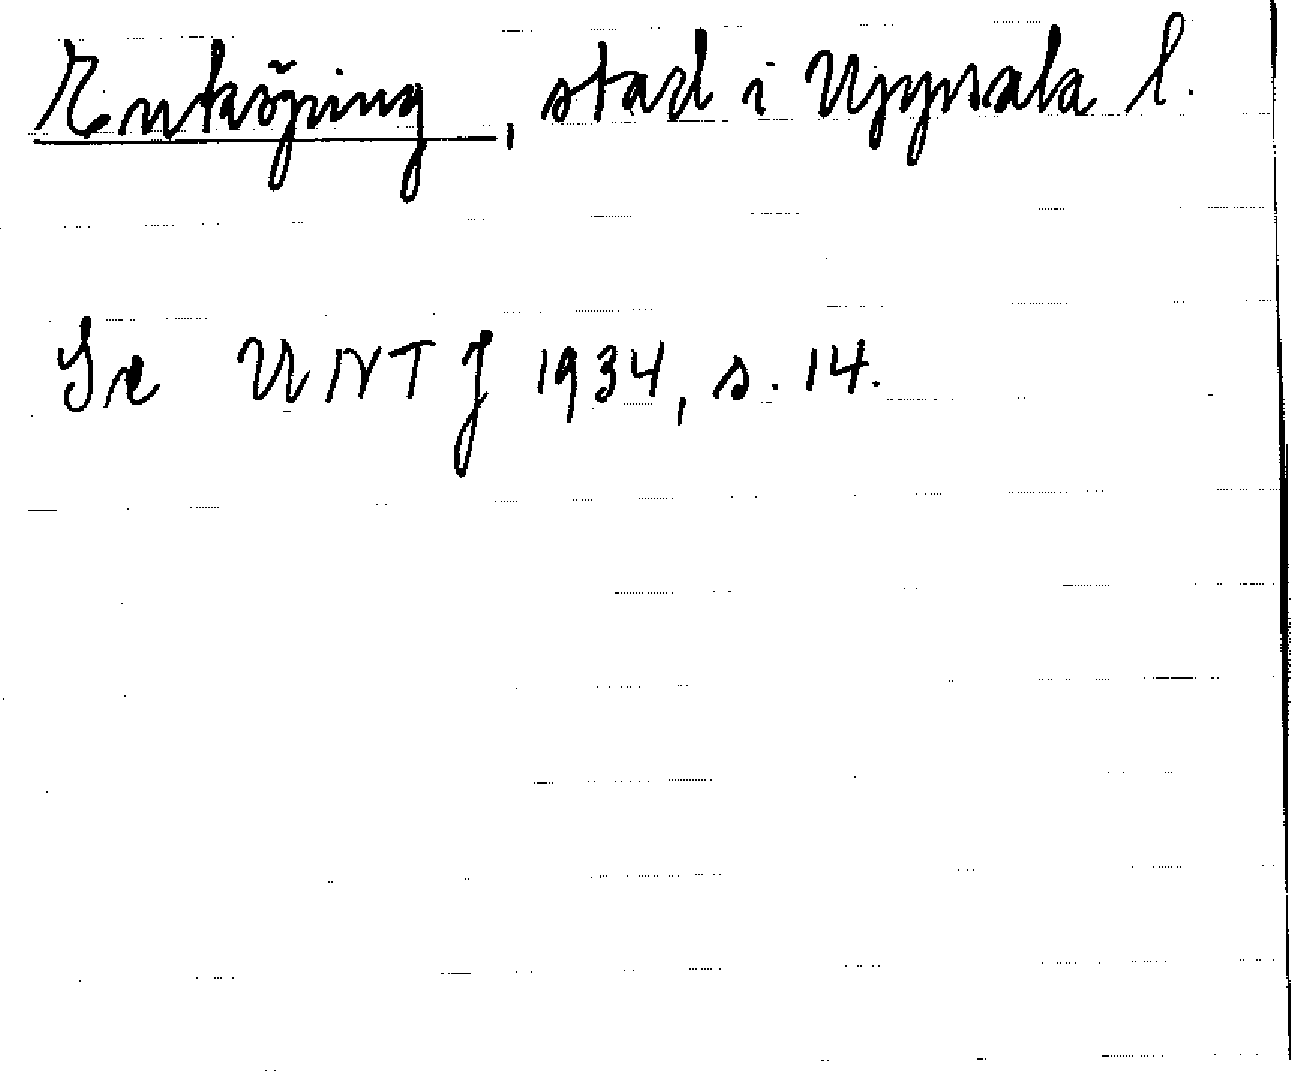 Enköping, stad i Uppsala l.
Se UNTJ 1934, s. 14.